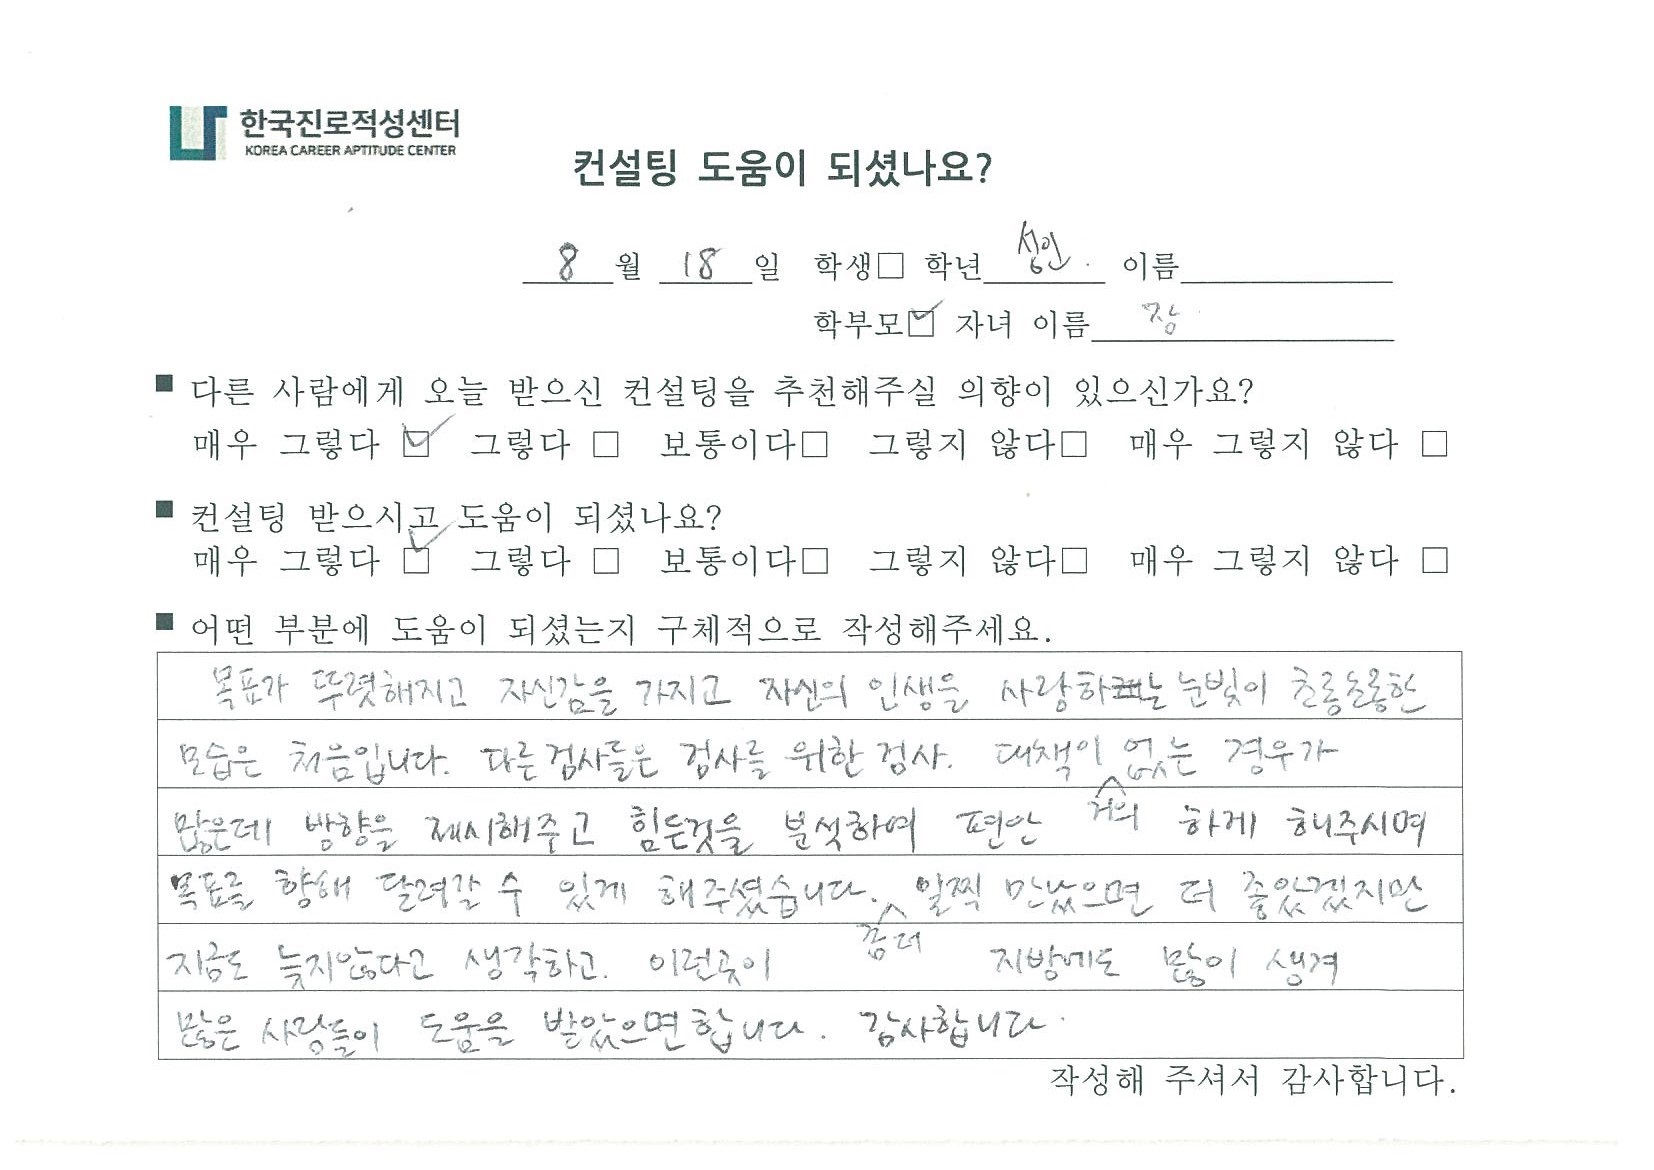 한국진로적성센터
KOREA CAREER APTITUDE CENTER
컨설팅 도움이 되셨나요?
8 월 18 일 학생□ 학년 성인 이름
학부모☑ 자녀 이름 장
■ 다른 사람에게 오늘 받으신 컨설팅을 추천해주실 의향이 있으신가요?
매우 그렇다 ☑ 그렇다 □ 보통이다□ 그렇지 않다□ 매우 그렇지 않다 □
■ 컨설팅 받으시고 도움이 되셨나요?
매우 그렇다 ☑ 그렇다 □ 보통이다□ 그렇지 않다□ 매우 그렇지 않다 □
■ 어떤 부분에 도움이 되셨는지 구체적으로 작성해주세요.
목표가 뚜렷해지고 자신감을 가지고 자신의 인생을 사랑하는 눈빛이 초롱초롱한
모습은 처음입니다. 다른검사들은 검사를 위한 검사. 대책이 거의 없는 경우가
많은데 방향을 제시해주고 힘든것을 분석하여 편안 하게 해주시며
목표를 향해 달려갈 수 있게 해주셨습니다. 좀더 일찍 만났으면 더 좋았겠지만
지금도 늦지않다고 생각하고. 이런곳이 지방에도 많이 생겨
많은 사람들이 도움을 받았으면합니다. 감사합니다.
작성해 주셔서 감사합니다.